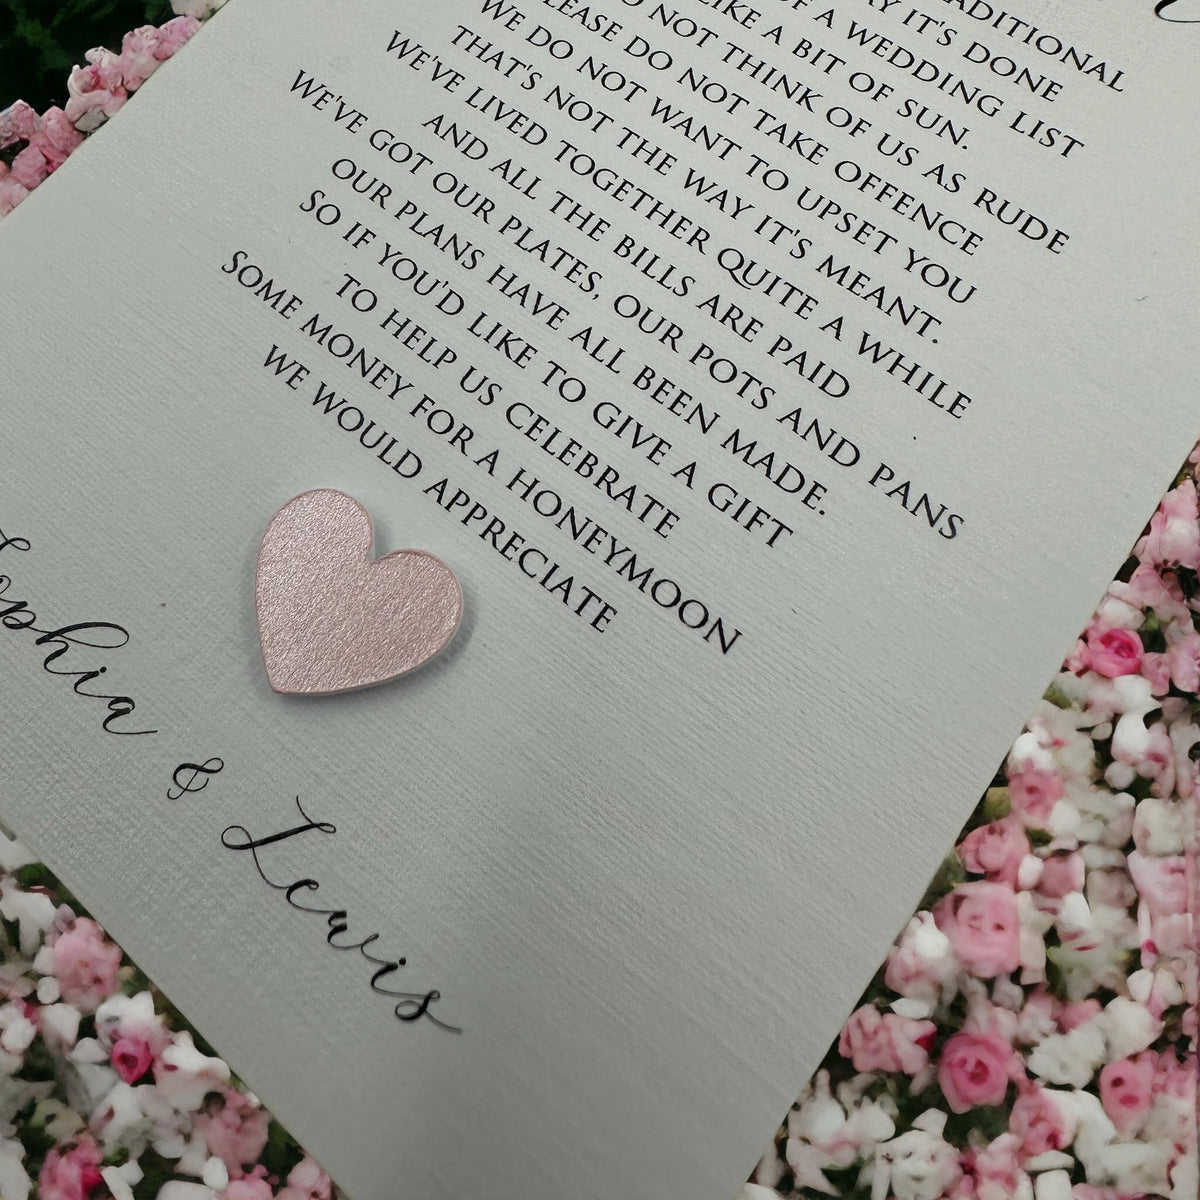 TRADITIONAL
WAY IT'S DONE
OF A WEDDING LIST
LIKE A BIT OF SUN.
DO NOT THINK OF US AS RUDE
PLEASE DO NOT TAKE OFFENCE
WE DO NOT WANT TO UPSET YOU
THAT'S NOT THE WAY IT'S MEANT.
WE'VE LIVED TOGETHER QUITE A WHILE
AND ALL THE BILLS ARE PAID
WE'VE GOT OUR PLATES, OUR POTS AND PANS
OUR PLANS HAVE ALL BEEN MADE.
SO IF YOU'D LIKE TO GIVE A GIFT
TO HELP US CELEBRATE
SOME MONEY FOR A HONEYMOON
WE WOULD APPRECIATE
Sophia & Lewis